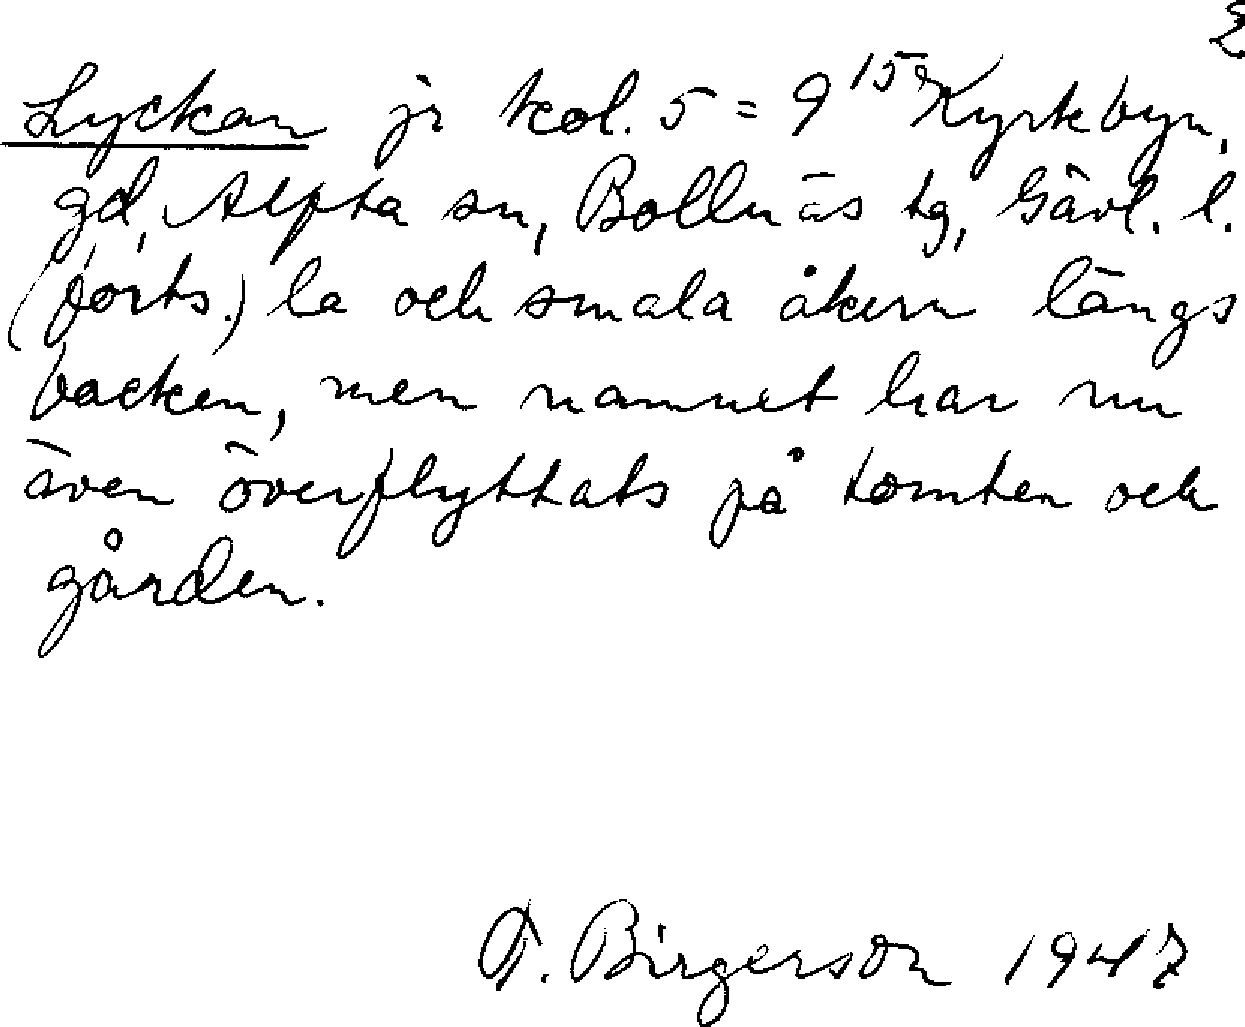 2
Lyckan jr kol. 5 = 9 15 Kyrkbyn,
gd, Alfta sn, Bollnäs tg, Gävl. l.
(forts.) la och smala åkern längs
backen, men namnet har nu
även överflyttats på tomten och
gården.
F. Birgerson 1947